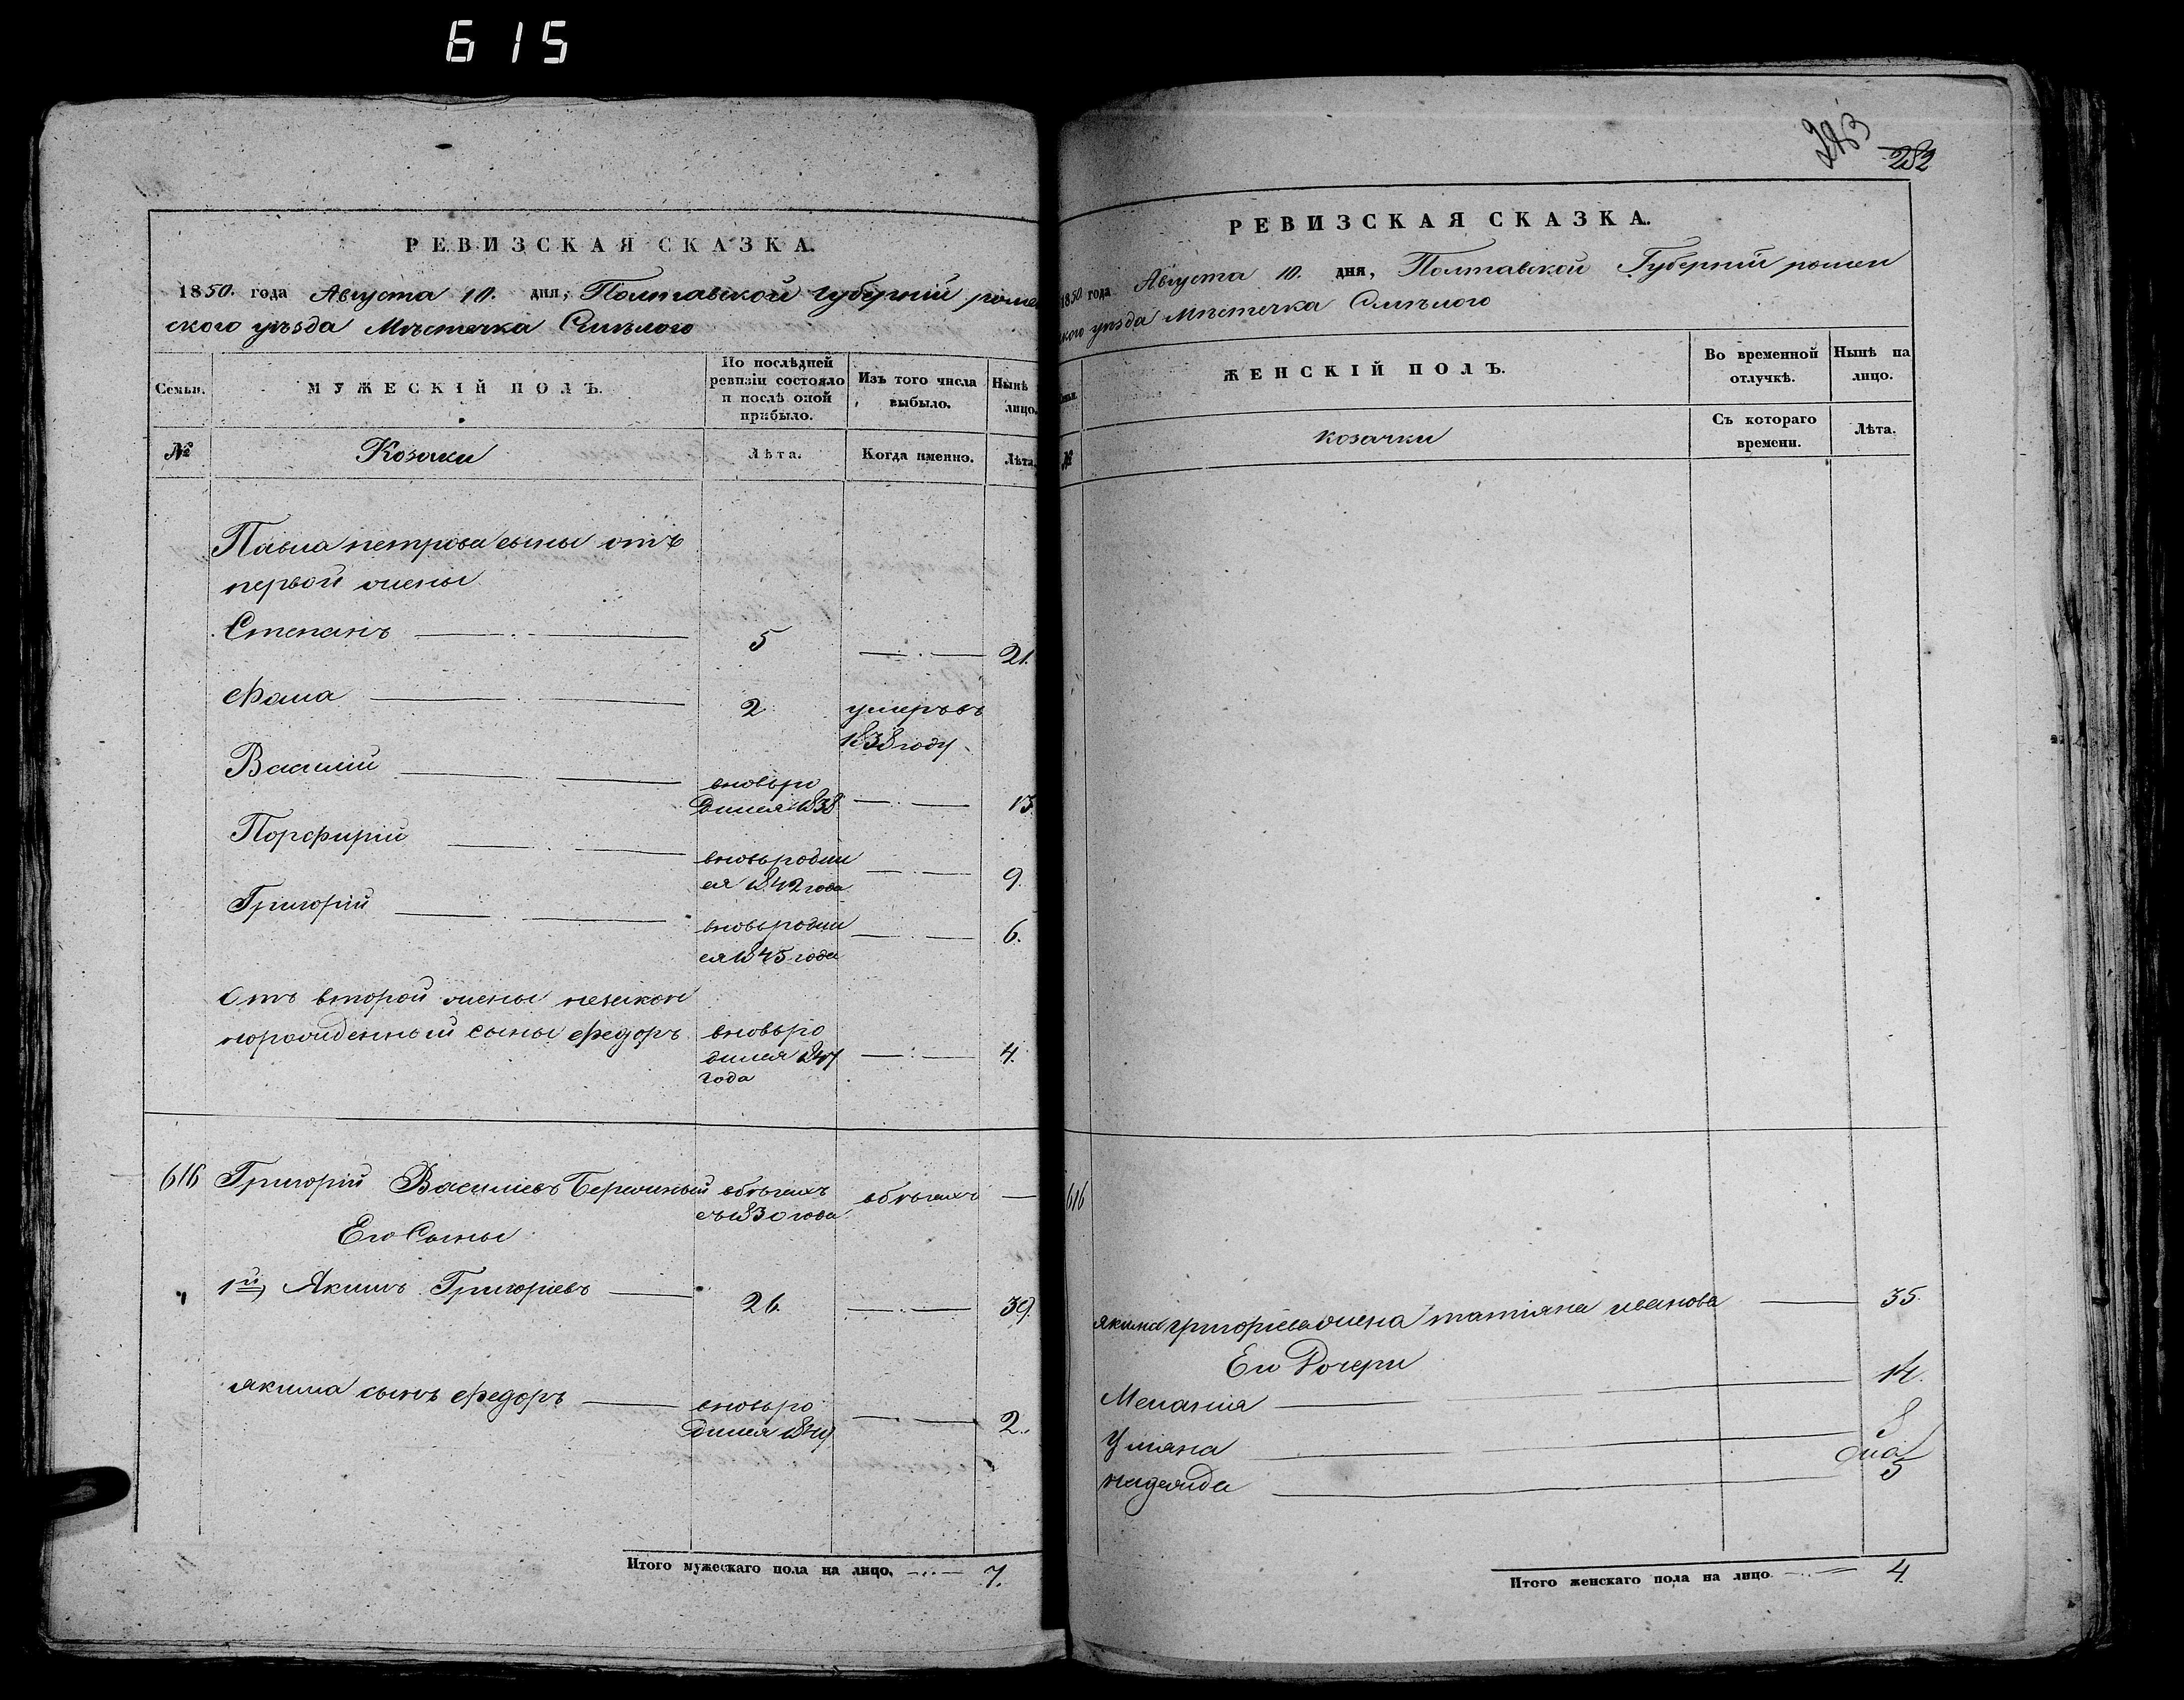 615
РЕВИЗСКАЯ СКАЗКА.
1850. года Августа 10. дня, Полтавской губерніи роме
ского уѣзда Мѣстечка Смѣлого
Семьи.
МУЖЕСКІЙ ПОЛЪ.
По послѣдней ревизіи состояло и послѣ оной прибыло.
Изъ того числа выбыло.
Нынѣ лицо.
№
Козаки
Лѣта.
Когда именно.
Лѣта.
Павла петрова сыны отъ
первой жены
Степанъ 5 21.
Фома 2 умеръ въ
1838 году
Василій вновь ро
дился 1838 13
Порфирій вновь родил
ся 1842 года 9.
Григорій вновь родил
ся 1845 года 6.
Отъ второй жены незакон
норожденный сынъ федоръ вновь ро
дился 1847 4.
года
616 Григорій Василіевъ Бережный въ бѣгахъ въ бѣгахъ
съ 1830 года
Его Сыны
1й, Якимъ Григоріевъ 26. 39.
якима сынъ федоръ вновь ро
дился 1849 2.
Итого мужескаго пола на лицо, 7.
283 282
РЕВИЗСКАЯ СКАЗКА.
1850 года Августа 10. дня, Полтавской Губерніи ромен
ского уѣзда Мѣстечка Смѣлого
Семьи.
ЖЕНСКІЙ ПОЛЪ.
Во временной отлучкѣ.
Нынѣ на лицо.
№
козачки
Съ котораго времени.
Лѣта.
616
якима григоріева жена татіяна иванова 35.
Его Дочери
Меланія 14.
Уліяна 8
надежда 5
Итого женскаго пола на лицо 4.